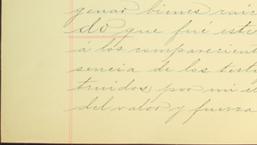 genar bienes raíc
do que fué este
á los comparecient
sencia de los testi
truidos por mi el
del valor y fuerza